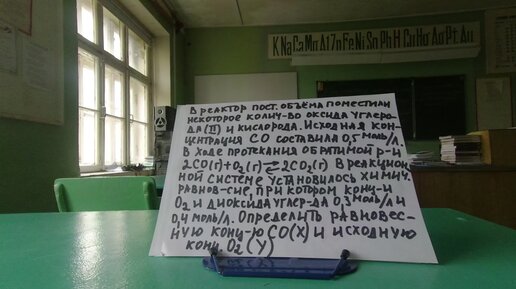 K Na Ca Mg Al Zn Fe Ni Sn Pb H Cu Hg Ag Pt Au
В РЕАКТОР ПОСТ. ОБЪЁМА ПОМЕСТИЛИ
НЕКОТОРОЕ КОЛИЧ-ВО ОКСИДА УГЛЕРО-
ДА (II) И КИСЛОРОДА. ИСХОДНАЯ КОН-
ЦЕНТРАЦИЯ СО СОСТАВИЛА 0,5 МОЛЬ/Л
В ХОДЕ ПРОТЕКАНИЯ ОБРАТИМОЙ Р-И
2CO(г)+O₂(г) ⇄ 2CO₂(г) В РЕАКЦИОН-
НОЙ СИСТЕМЕ УСТАНОВИЛОСЬ ХИМИЧ.
РАВНОВ-СИЕ, ПРИ КОТОРОМ КОНЦ-И
O₂ И ДИОКСИДА УГЛЕР-ДА 0,3 МОЛЬ/Л И
0,4 МОЛЬ/Л. ОПРЕДЕЛИТЬ РАВНОВЕС-
НУЮ КОНЦ-Ю CO(X) И ИСХОДНУЮ
КОНЦ. O₂ (Y)